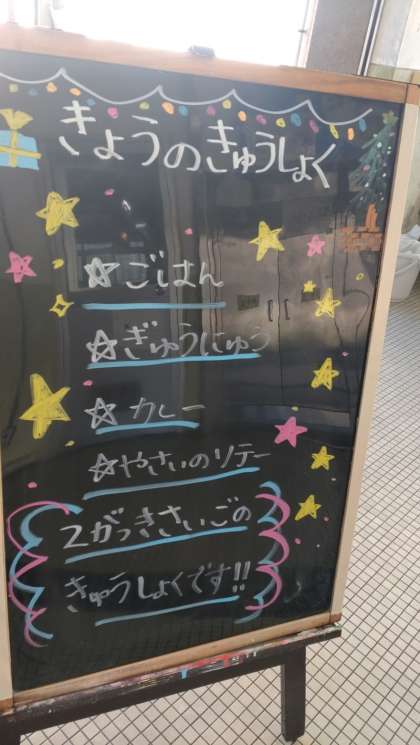 きょうのきゅうしょく
☆ごはん
☆ぎゅうにゅう
☆カレー
☆やさいのソテー
2がっきさいごの
きゅうしょくです!!